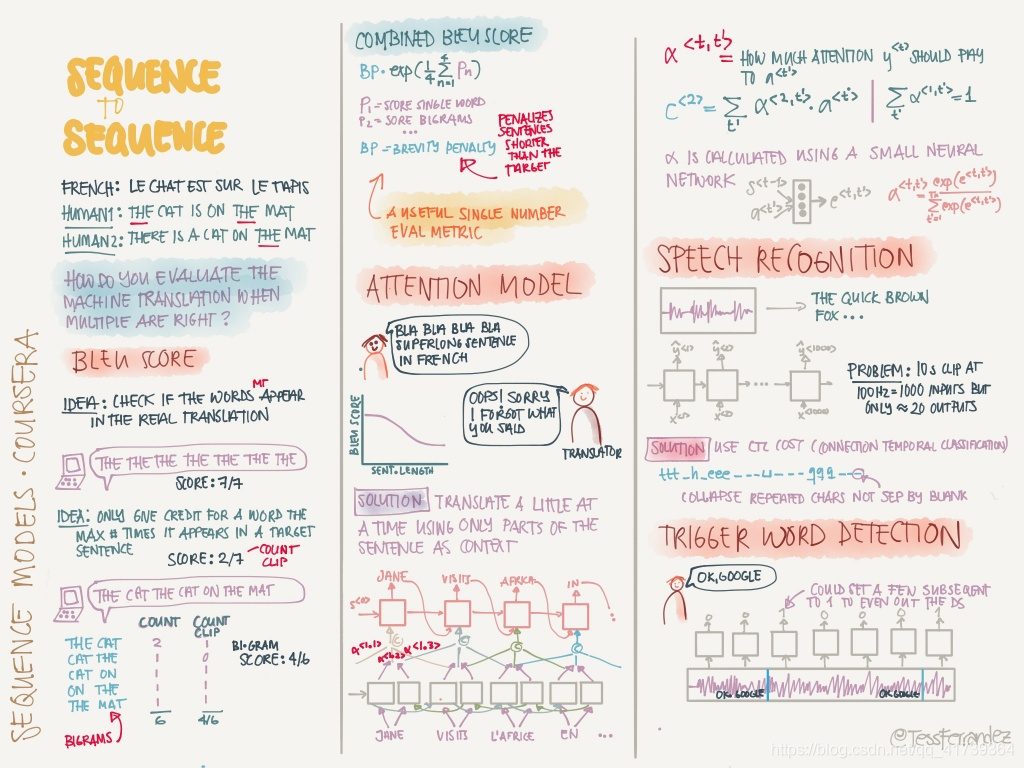 SEQUENCE
TO
SEQUENCE
FRENCH: LE CHAT EST SUR LE TAPIS
HUMAN1: THE CAT IS ON THE MAT
HUMAN2: THERE IS A CAT ON THE MAT
HOW DO YOU EVALUATE THE
MACHINE TRANSLATION WHEN
MULTIPLE ARE RIGHT?
BLEU SCORE
IDEA: CHECK IF THE WORDS APPEAR
MT
IN THE REAL TRANSLATION
THE THE THE THE THE THE THE
SCORE: 7/7
IDEA: ONLY GIVE CREDIT FOR A WORD THE
MAX # TIMES IT APPEARS IN A TARGET
SENTENCE
SCORE: 2/7
COUNT
CLIP
THE CAT THE CAT ON THE MAT
COUNT
COUNT
CLIP
THE CAT 2 1
CAT THE 1 0
CAT ON 1 1
ON THE 1 1
THE MAT 1 1
6 4/6
BIGRAM
SCORE: 4/6
BIGRAMS
SEQUENCE MODELS · COURSERA
COMBINED BLEU SCORE
BP · exp(1/4 4∑n=1 Pn)
P1 = SCORE SINGLE WORD
P2 = SORE BIGRAMS
...
BP = BREVITY PENALTY
PENALIZES
SENTENCES
SHORTER
THAN THE
TARGET
A USEFUL SINGLE NUMBER
EVAL METRIC
ATTENTION MODEL
BLA BLA BLA BLA
SUPERLONG SENTENCE
IN FRENCH
OOPS! SORRY
I FORGOT WHAT
YOU SAID
TRANSLATOR
BLEU SCORE
SENT. LENGTH
SOLUTION TRANSLATE A LITTLE AT
A TIME USING ONLY PARTS OF THE
SENTENCE AS CONTEXT
JANE VISITS AFRICA IN ...
S<0>
C C C C
α<1,1> α<1,2> α<1,3>
JANE VISITS L'AFRICE EN ...
α<t,t'> = HOW MUCH ATTENTION y<t> SHOULD PAY
TO a<t'>
C<2> = ∑t' α<2,t'> · a<t'> | ∑t' α<1,t'> = 1
α IS CALCULATED USING A SMALL NEURAL
NETWORK
S<t-1>
a<t'>
e<t,t'>
a<t,t'> = exp(e<t,t'>) / ∑t'=1 exp(e<t,t'>)
SPEECH RECOGNITION
THE QUICK BROWN
FOX ...
ŷ<1> ŷ<2> ŷ<1000>
...
x<1> x<2> x<1000>
PROBLEM: 10s CLIP AT
100Hz = 1000 INPUTS BUT
ONLY ≈ 20 OUTPUTS
SOLUTION USE CTC COST (CONNECTION TEMPORAL CLASSIFICATION)
ttt_h_eee---⊔---qqq--
COLLAPSE REPEATED CHARS NOT SEP BY BLANK
TRIGGER WORD DETECTION
OK, GOOGLE
COULD SET A FEW SUBSEQUENT
TO 1 TO EVEN OUT THE DS
0 0 1 0 0 0 1
OK, GOOGLE OK GOOGLE
@TessFerrandez